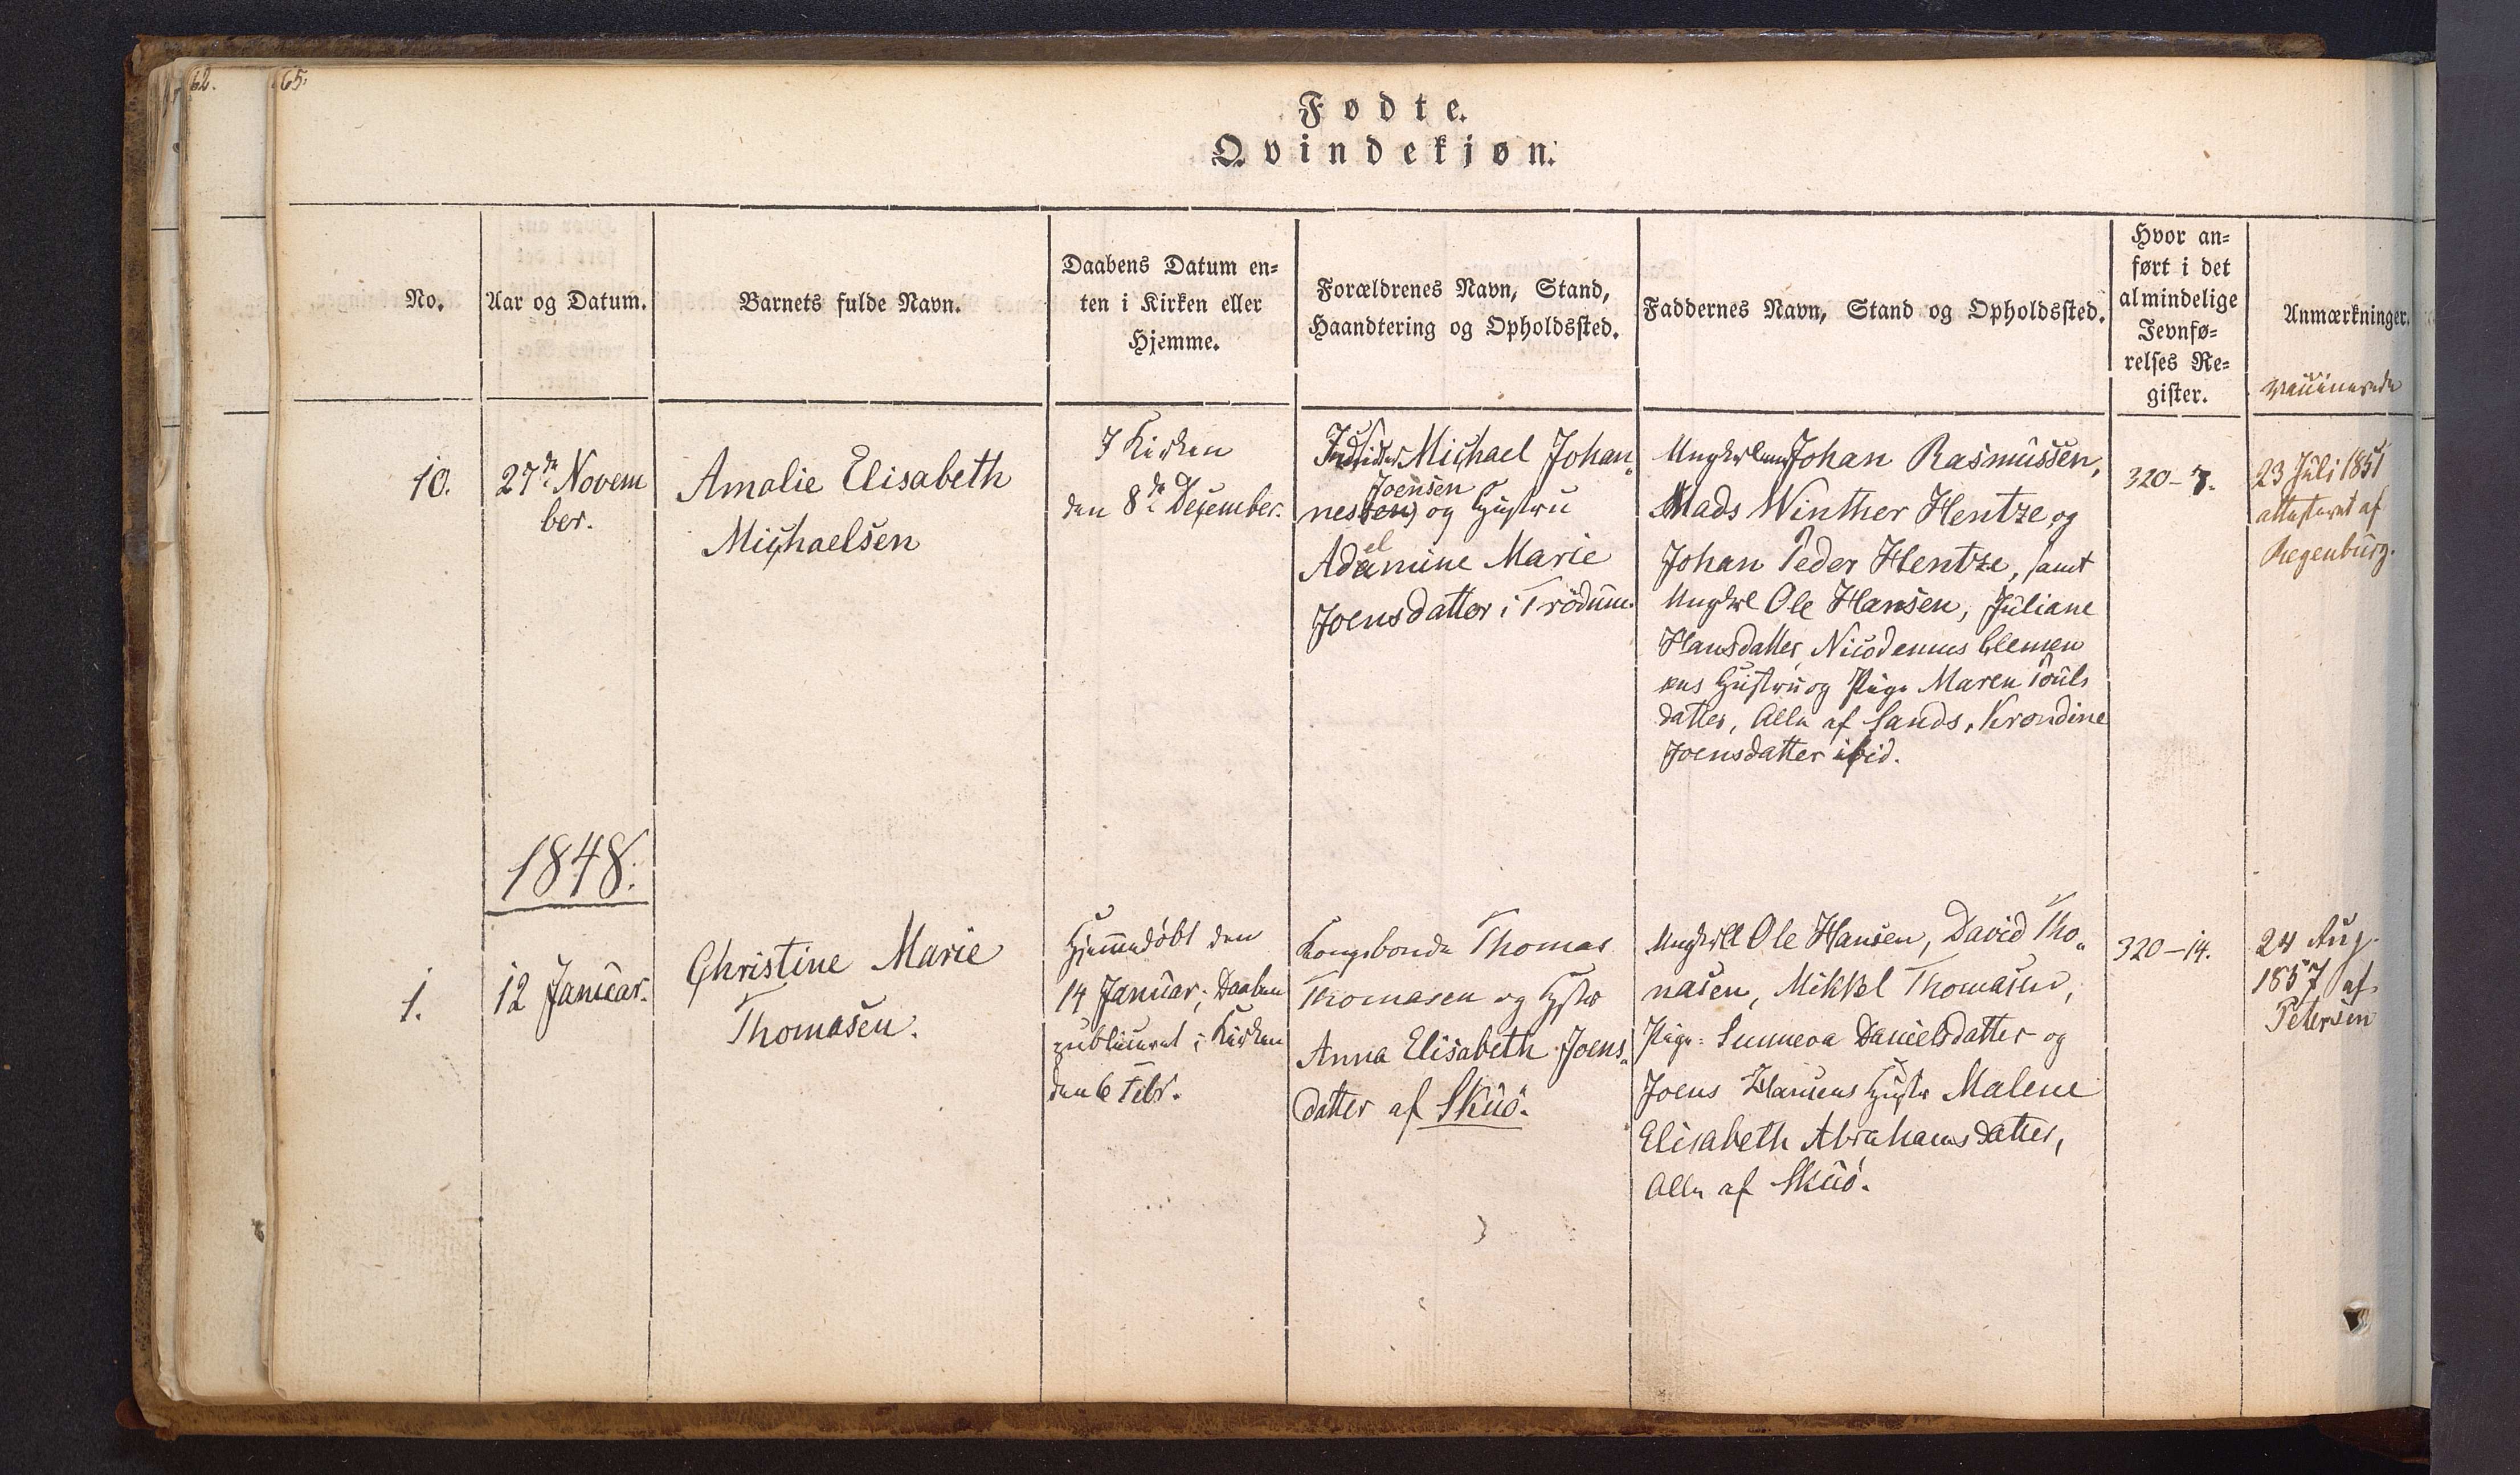 62.
65.
Fødte.
Qvindekjøn.
No.
Aar og Datum.
Barnets fulde Navn.
Daabens Datum en=
ten i Kirken eller
Hjemme.
Forældrenes Navn, Stand,
Haandtering og Opholdssted.
Faddernes Navn, Stand og Opholdssted.
Hvor an=
ført i det
almindelige
Jevnfø=
relses Re=
gister.
Anmærkninger.
vaccinerede
10.
27de Novem
ber.
Amalie Elisabeth
Michaelsen
I Kirken
den 8de December.
Indsidder Michael Johan„
Joensen
nessen) og Hustru
el
Adamine Marie
Joensdatter i Trödum.
Ungkarlene Johan Rasmussen,
Mads Winther Hentze og
Johan Peder Hentze, samt
Ungkrl Ole Hansen, Juliane
Hansdatter, Nicodemus Clemen
sens Hustru og Pige Maren Pouls
datter, Alle af Sands, Krondine
Joensdatter ibid.
320-7.
23 Juli 1851
attesteret af
Regenburg.
1848.
1.
12 Januar.
Christine Marie
Thomasen.
Hjemmedöbt den
14 Januar; Daaben
publiceret i Kirken
den 6 Febr.
Kongsbonde Thomas
Thomasen og Hstr
Anna Elisabeth Joens„
datter af Skuö.
Ungkrll Ole Hansen, David Tho„
masen, Mikkel Thomasen,
Pige: Sunneva Danielsdatter og
Joens Hansens Hustr Malene
Elisabeth Abrahamsdatter,
Alle af Skuö.
320-14.
24 Aug.
1857 af
Petersen